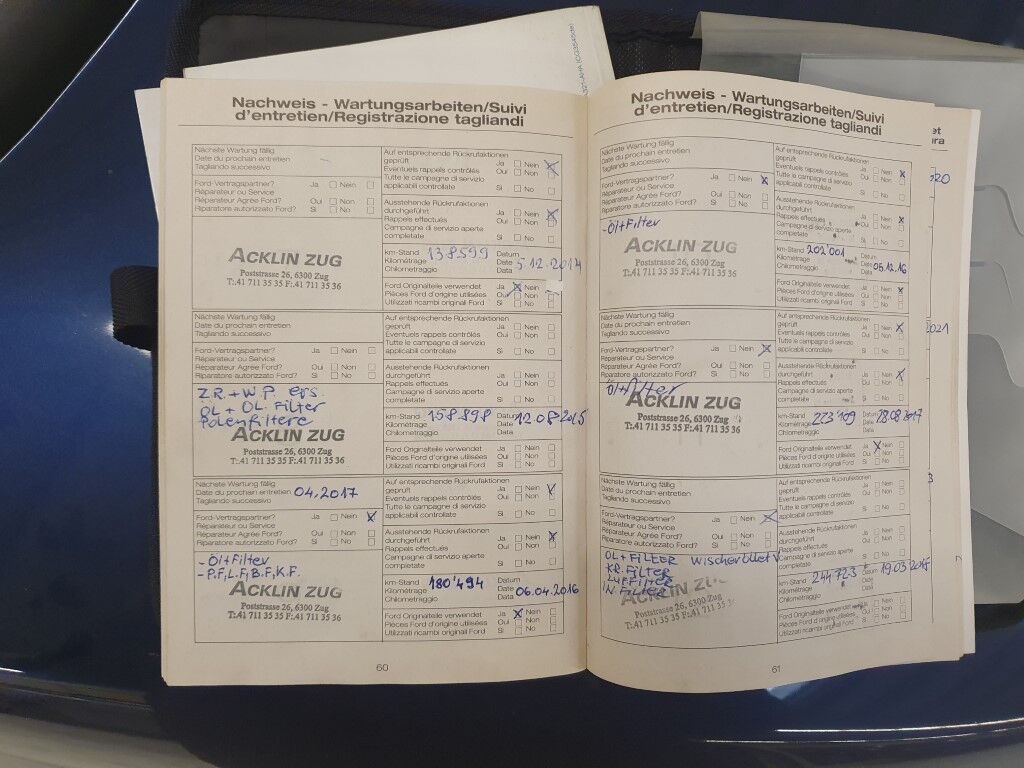 Nachweis - Wartungsarbeiten/Suivi
d'entretien/Registrazione tagliandi
Nächste Wartung fällig
Date du prochain entretien
Tagliando successivo
Ford-Vertragspartner? Ja Nein
Réparateur ou Service
Réparateur Agrée Ford? Oui Non
Riparatore autorizzato Ford? Si No
ACKLIN ZUG
Poststrasse 26, 6300 Zug
T:.41 711 35 35 F:.41 711 35 36
Auf entsprechende Rückrufaktionen
geprüft Ja Nein
Eventuels rappels contrôlés Oui Non
Tutte le campagne di servizio
applicabili controllate Si No
Ausstehende Rückrufaktionen
durchgeführt Ja Nein
Rappels effectués Oui Non
Campagne di servizio aperte
completate Si No
km-Stand 138599 Datum
Kilométrage Date 5.12.2014
Chilometraggio Data
Ford Originalteile verwendet Ja Nein
Pièces Ford d'origine utilisées Oui Non
Utilizzati ricambi originali Ford Si No
Nächste Wartung fällig
Date du prochain entretien
Tagliando successivo
Ford-Vertragspartner? Ja Nein
Réparateur ou Service
Réparateur Agrée Ford? Oui Non
Riparatore autorizzato Ford? Si No
Z.R.+W.P. ers.
ÖL + ÖL. Filter
Polenfiltere
ACKLIN ZUG
Poststrasse 26, 6300 Zug
T:.41 711 35 35 F:.41 711 35 36
Auf entsprechende Rückrufaktionen
geprüft Ja Nein
Eventuels rappels contrôlés Oui Non
Tutte le campagne di servizio
applicabili controllate Si No
Ausstehende Rückrufaktionen
durchgeführt Ja Nein
Rappels effectués Oui Non
Campagne di servizio aperte
completate Si No
km-Stand 158.898 Datum 12.08.2015
Kilométrage Date
Chilometraggio Data
Ford Originalteile verwendet Ja Nein
Pièces Ford d'origine utilisées Oui Non
Utilizzati ricambi originali Ford Si No
Nächste Wartung fällig
Date du prochain entretien 04.2017
Tagliando successivo
Ford-Vertragspartner? Ja Nein
Réparateur ou Service
Réparateur Agrée Ford? Oui Non
Riparatore autorizzato Ford? Si No
-Öl+Filter
-P.F,L.F,B.F,K.F.
ACKLIN ZUG
Poststrasse 26, 6300 Zug
T:.41 711 35 35 F:.41 711 35 36
Auf entsprechende Rückrufaktionen
geprüft Ja Nein
Eventuels rappels contrôlés Oui Non
Tutte le campagne di servizio
applicabili controllate Si No
Ausstehende Rückrufaktionen
durchgeführt Ja Nein
Rappels effectués Oui Non
Campagne di servizio aperte
completate Si No
km-Stand 180'494 Datum
Kilométrage Date 06.04.2016
Chilometraggio Data
Ford Originalteile verwendet Ja Nein
Pièces Ford d'origine utilisées Oui Non
Utilizzati ricambi originali Ford Si No
60
Nachweis - Wartungsarbeiten/Suivi
d'entretien/Registrazione tagliandi
Nächste Wartung fällig
Date du prochain entretien
Tagliando successivo
Ford-Vertragspartner? Ja Nein
Réparateur ou Service
Réparateur Agrée Ford? Oui Non
Riparatore autorizzato Ford? Si No
-Öl+Filter
ACKLIN ZUG
Poststrasse 26, 6300 Zug
T:.41 711 35 35 F:.41 711 35 36
Auf entsprechende Rückrufaktionen
geprüft Ja Nein
Eventuels rappels contrôlés Oui Non
Tutte le campagne di servizio
applicabili controllate Si No
Ausstehende Rückrufaktionen
durchgeführt Ja Nein
Rappels effectués Oui Non
Campagne di servizio aperte
completate Si No
km-Stand 202'001 Datum
Kilométrage Date 06.12.16
Chilometraggio Data
Ford Originalteile verwendet Ja Nein
Pièces Ford d'origine utilisées Oui Non
Utilizzati ricambi originali Ford Si No
Nächste Wartung fällig
Date du prochain entretien
Tagliando successivo
Ford-Vertragspartner? Ja Nein
Réparateur ou Service
Réparateur Agrée Ford? Oui Non
Riparatore autorizzato Ford? Si No
Öl+filter
ACKLIN ZUG
Poststrasse 26, 6300 Zug
T:.41 711 35 35 F:.41 711 35 36
Auf entsprechende Rückrufaktionen
geprüft Ja Nein
Eventuels rappels contrôlés Oui Non
Tutte le campagne di servizio
applicabili controllate Si No
Ausstehende Rückrufaktionen
durchgeführt Ja Nein
Rappels effectués Oui Non
Campagne di servizio aperte
completate Si No
km-Stand 223'109 Datum 28.08.2017
Kilométrage Date
Chilometraggio Data
Ford Originalteile verwendet Ja Nein
Pièces Ford d'origine utilisées Oui Non
Utilizzati ricambi originali Ford Si No
Nächste Wartung fällig
Date du prochain entretien
Tagliando successivo
Ford-Vertragspartner? Ja Nein
Réparateur ou Service
Réparateur Agrée Ford? Oui Non
Riparatore autorizzato Ford? Si No
ÖL+FILTER
KR.FILTER
LUFFILTER
IN FILTER
ACKLIN ZUG
Poststrasse 26, 6300 Zug
T:.41 711 35 35 F:.41 711 35 36
Auf entsprechende Rückrufaktionen
geprüft Ja Nein
Eventuels rappels contrôlés Oui Non
Tutte le campagne di servizio
applicabili controllate Si No
Ausstehende Rückrufaktionen
durchgeführt Ja Nein
Rappels effectués Oui Non
Campagne di servizio aperte
completate Si No
km-Stand 244723 Datum
Kilométrage Date
Chilometraggio Data
Ford Originalteile verwendet Ja Nein
Pièces Ford d'origine utilisées Oui Non
Utilizzati ricambi originali Ford Si No
61
et
020
021